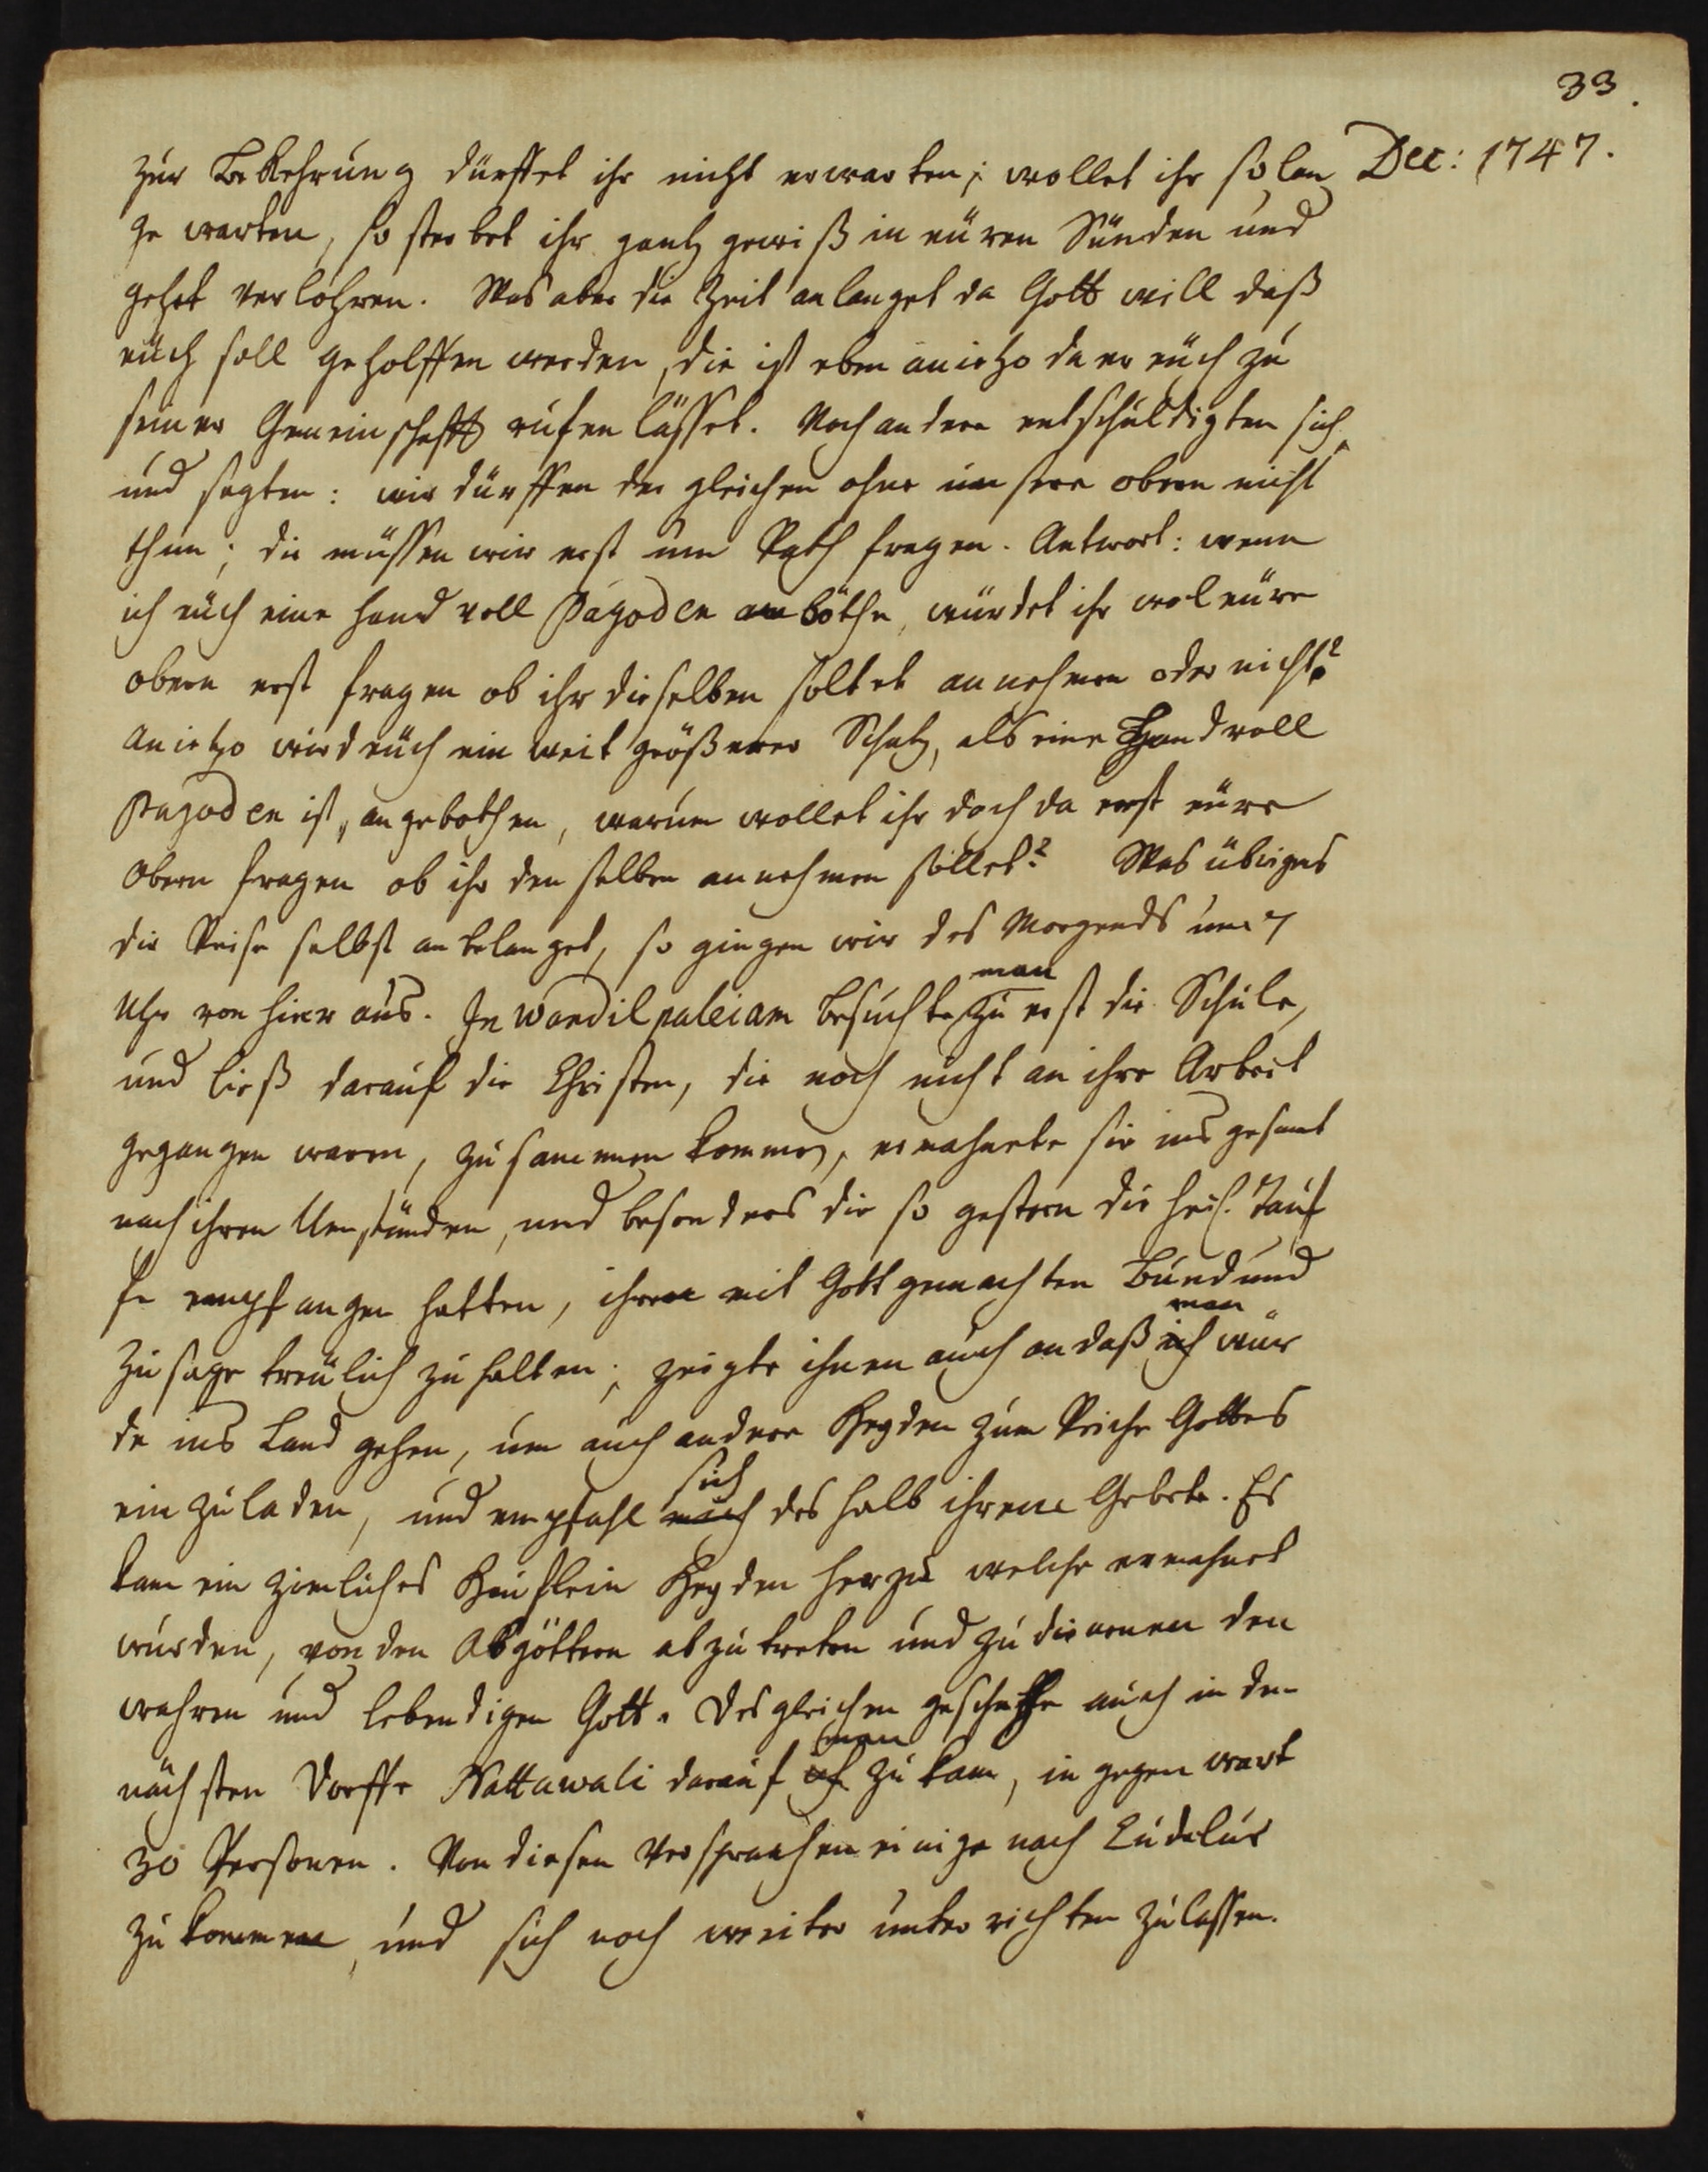 33.
Dec: 1747.
zur Bekehrung dürffet ihr nicht erwarten; wollet ihr so lan
ge warten, so sterbet ihr gantz gewiß in euren Sünden und
gehet verlohren. Was aber die Zeit anlanget da Gott will daß
euch soll geholffen werden, die ist eben anietzo da er euch zu
seiner Gemeinschafft rufen lässet. Noch andere entschuldigten sich
und sagten: wir dürffen der gleichen ohne unsere obern nicht
thun; die müssen wir erst um Rath fragen. Antwort: wenn
ich euch eine Hand voll Pagoden anböthe, würdet ihr wol eure
obern erst fragen ob ihr dieselben soltet annehmen oder nicht?
Anietzo wird euch ein weit größerer Schatz, als eine Hand voll
Pagoden ist, angebothen, warum wollet ihr doch da erst eure
Obern fragen ob ihr denselben annehmen sollet? Was übrigens
die Reise selbst anbelanget, so gingen wir des Morgends um 7
Uhr von hier aus. In Wandilpaleiam besuchte man zu erst die Schule,
und ließ darauf die Christen, die noch nicht an ihre Arbeit
gegangen waren, zusammen kommen, ermahnete sie ins gesamt
nach ihren Umständen, und besonders die so gestern die heil. Tauf
fe empfangen hatten, ihren mit Gott gemachten Bund und
Zusage treulich zu halten; zeigte ihnen auch an daß ich man wür
de ins Land gehen, um auch andere Heyden zum Reiche Gottes
ein zu laden, und empfahl mich sich deshalb ihrem Gebete. Es
kam ein zimliches Häuflein Heyden herzu welche ermahnet
wurden, von den Abgöttern abzutreten und zu dienen den
wahren und lebendigen Gott. Desgleichen geschahe auch in dem
nächsten Dorffe Nattawali darauf ich man zu kam, in gegenwart
30 Personen. Von diesen versprachen einige nach Cudelur
zu kommen, und sich noch weiter unterrichten zu lassen.